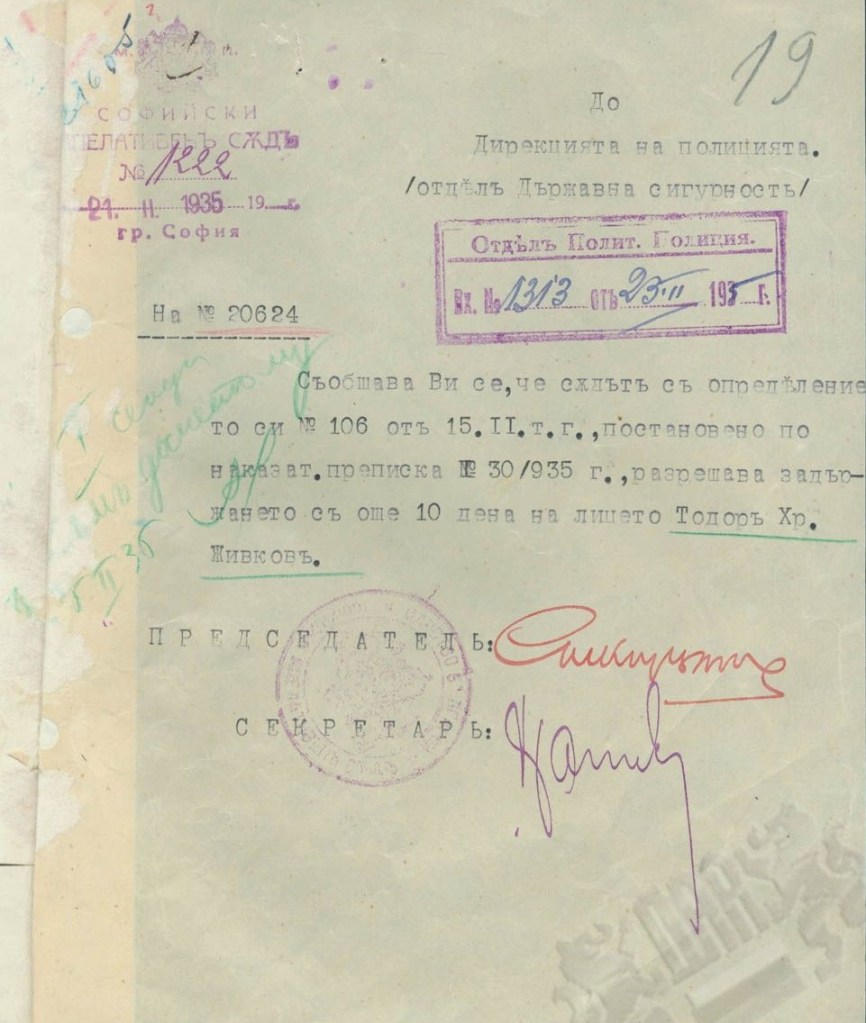 19
М. П.
СОФИЙСКИ
АПЕЛАТИВЕНЪ СѪДЪ
№ 1222
21. II. 1935 19 г.
гр. София
До
Дирекцията на полицията.
/отдѣлъ Държавна сигурность/
Отдѣлъ Полит. Полиция.
Вх. № 1313 отъ 25.II 1935 г.
На № 20624
Съобшава Ви се,че сѫдътъ съ опредѣление
то си № 106 отъ 15.II.т.г.,постановено по
наказат.преписка № 30/935 г.,разрешава задър-
жането съ още 10 дена на лицето Тодоръ Хр.
Живковъ.
ПРЕДСЕДАТЕЛЬ:
СЕКРЕТАРЬ: